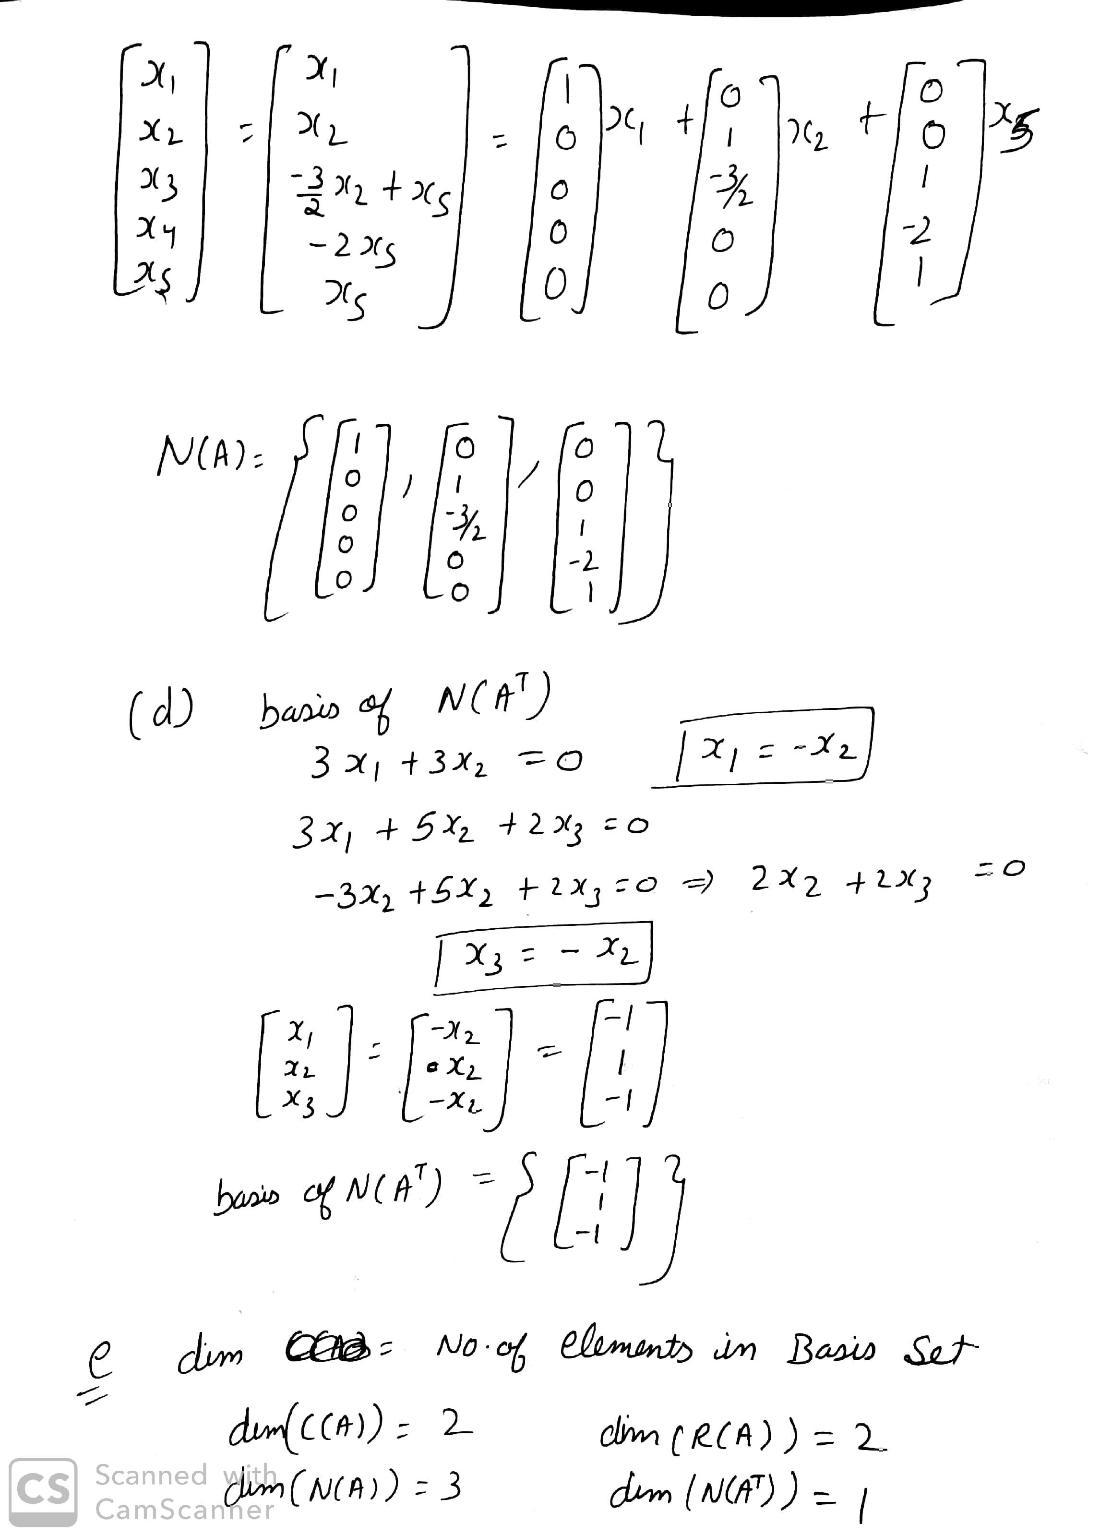 [x1 x2 x3 x4 x5] = [x1 x2 -3/2 x2 + x5 -2x5 x5] = [1 0 0 0 0] x1 + [0 1 -3/2 0 0] x2 + [0 0 1 -2 1] x5
N(A) = { [1 0 0 0 0] , [0 1 -3/2 0 0] , [0 0 1 -2 1] }
(d) basis of N(A^T)
3x1 + 3x2 = 0 x1 = -x2
3x1 + 5x2 + 2x3 = 0
-3x2 + 5x2 + 2x3 = 0 ⇒ 2x2 + 2x3 = 0
x3 = - x2
[x1 x2 x3] = [-x2 x2 -x2] = [-1 1 -1]
basis of N(A^T) = { [-1 1 -1] }
e dim = No. of elements in Basis Set
dim(C(A)) = 2 dim(R(A)) = 2
dim(N(A)) = 3 dim(N(A^T)) = 1
CS Scanned with CamScanner